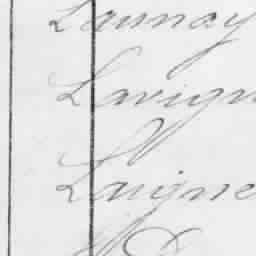 Launay
Lavign
Laigne